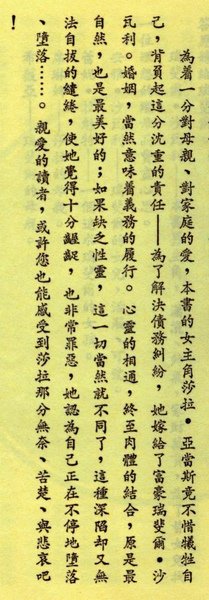 為着一分對母親、對家庭的愛，本書的女主角莎拉．亞當斯竟不惜犧牲自
己，背負起這分沈重的責任——為了解決債務糾紛，她嫁給了富豪瑞斐爾．沙
瓦利。婚姻，當然意味着義務的履行。心靈的相通，終至肉體的結合，原是最
自然，也是最美好的；如果缺乏性靈，這一切當然就不同了，這種深陷却又無
法自拔的纏綣，使她覺得十分齷齪，也非常罪惡，她認為自己正在不停地墮落
、墮落……。親愛的讀者，或許您也能感受到莎拉那分無奈、苦楚、與悲哀吧
！